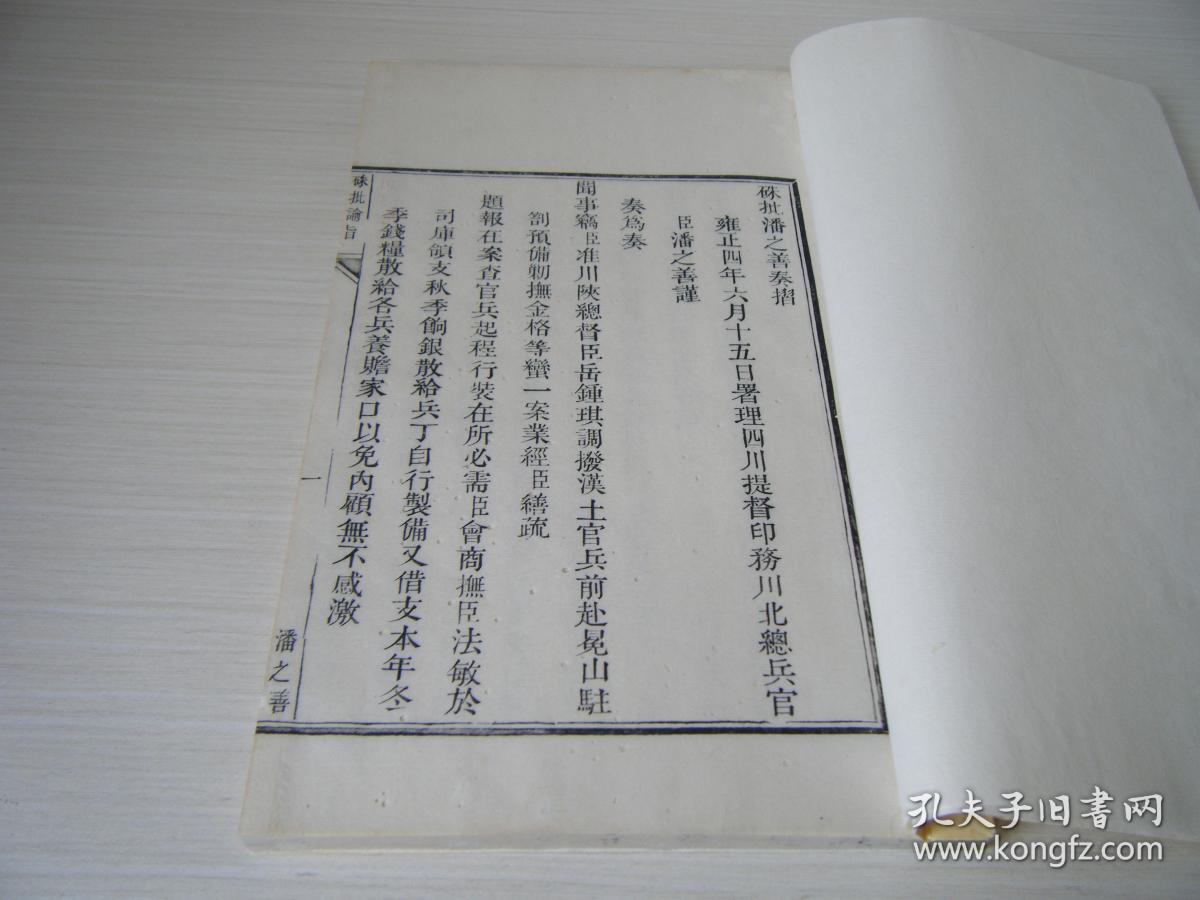 硃批潘之善奏摺
雍正四年六月十五日署理四川提督印務川北總兵官
臣潘之善謹
奏爲奏
聞事竊臣准川陝總督臣岳鍾琪調撥漢土官兵前赴冕山駐
劄預備剿撫金格等蠻一案業經臣繕疏
題報在案查官兵起程行裝在所必需臣會商撫臣法敏於
司庫領支秋季餉銀散給兵丁自行製備又借支本年冬
季錢糧散給各兵養贍家口以免內顧無不感激
硃批諭旨
一
潘之善
孔夫子旧书网
www.kongfz.com